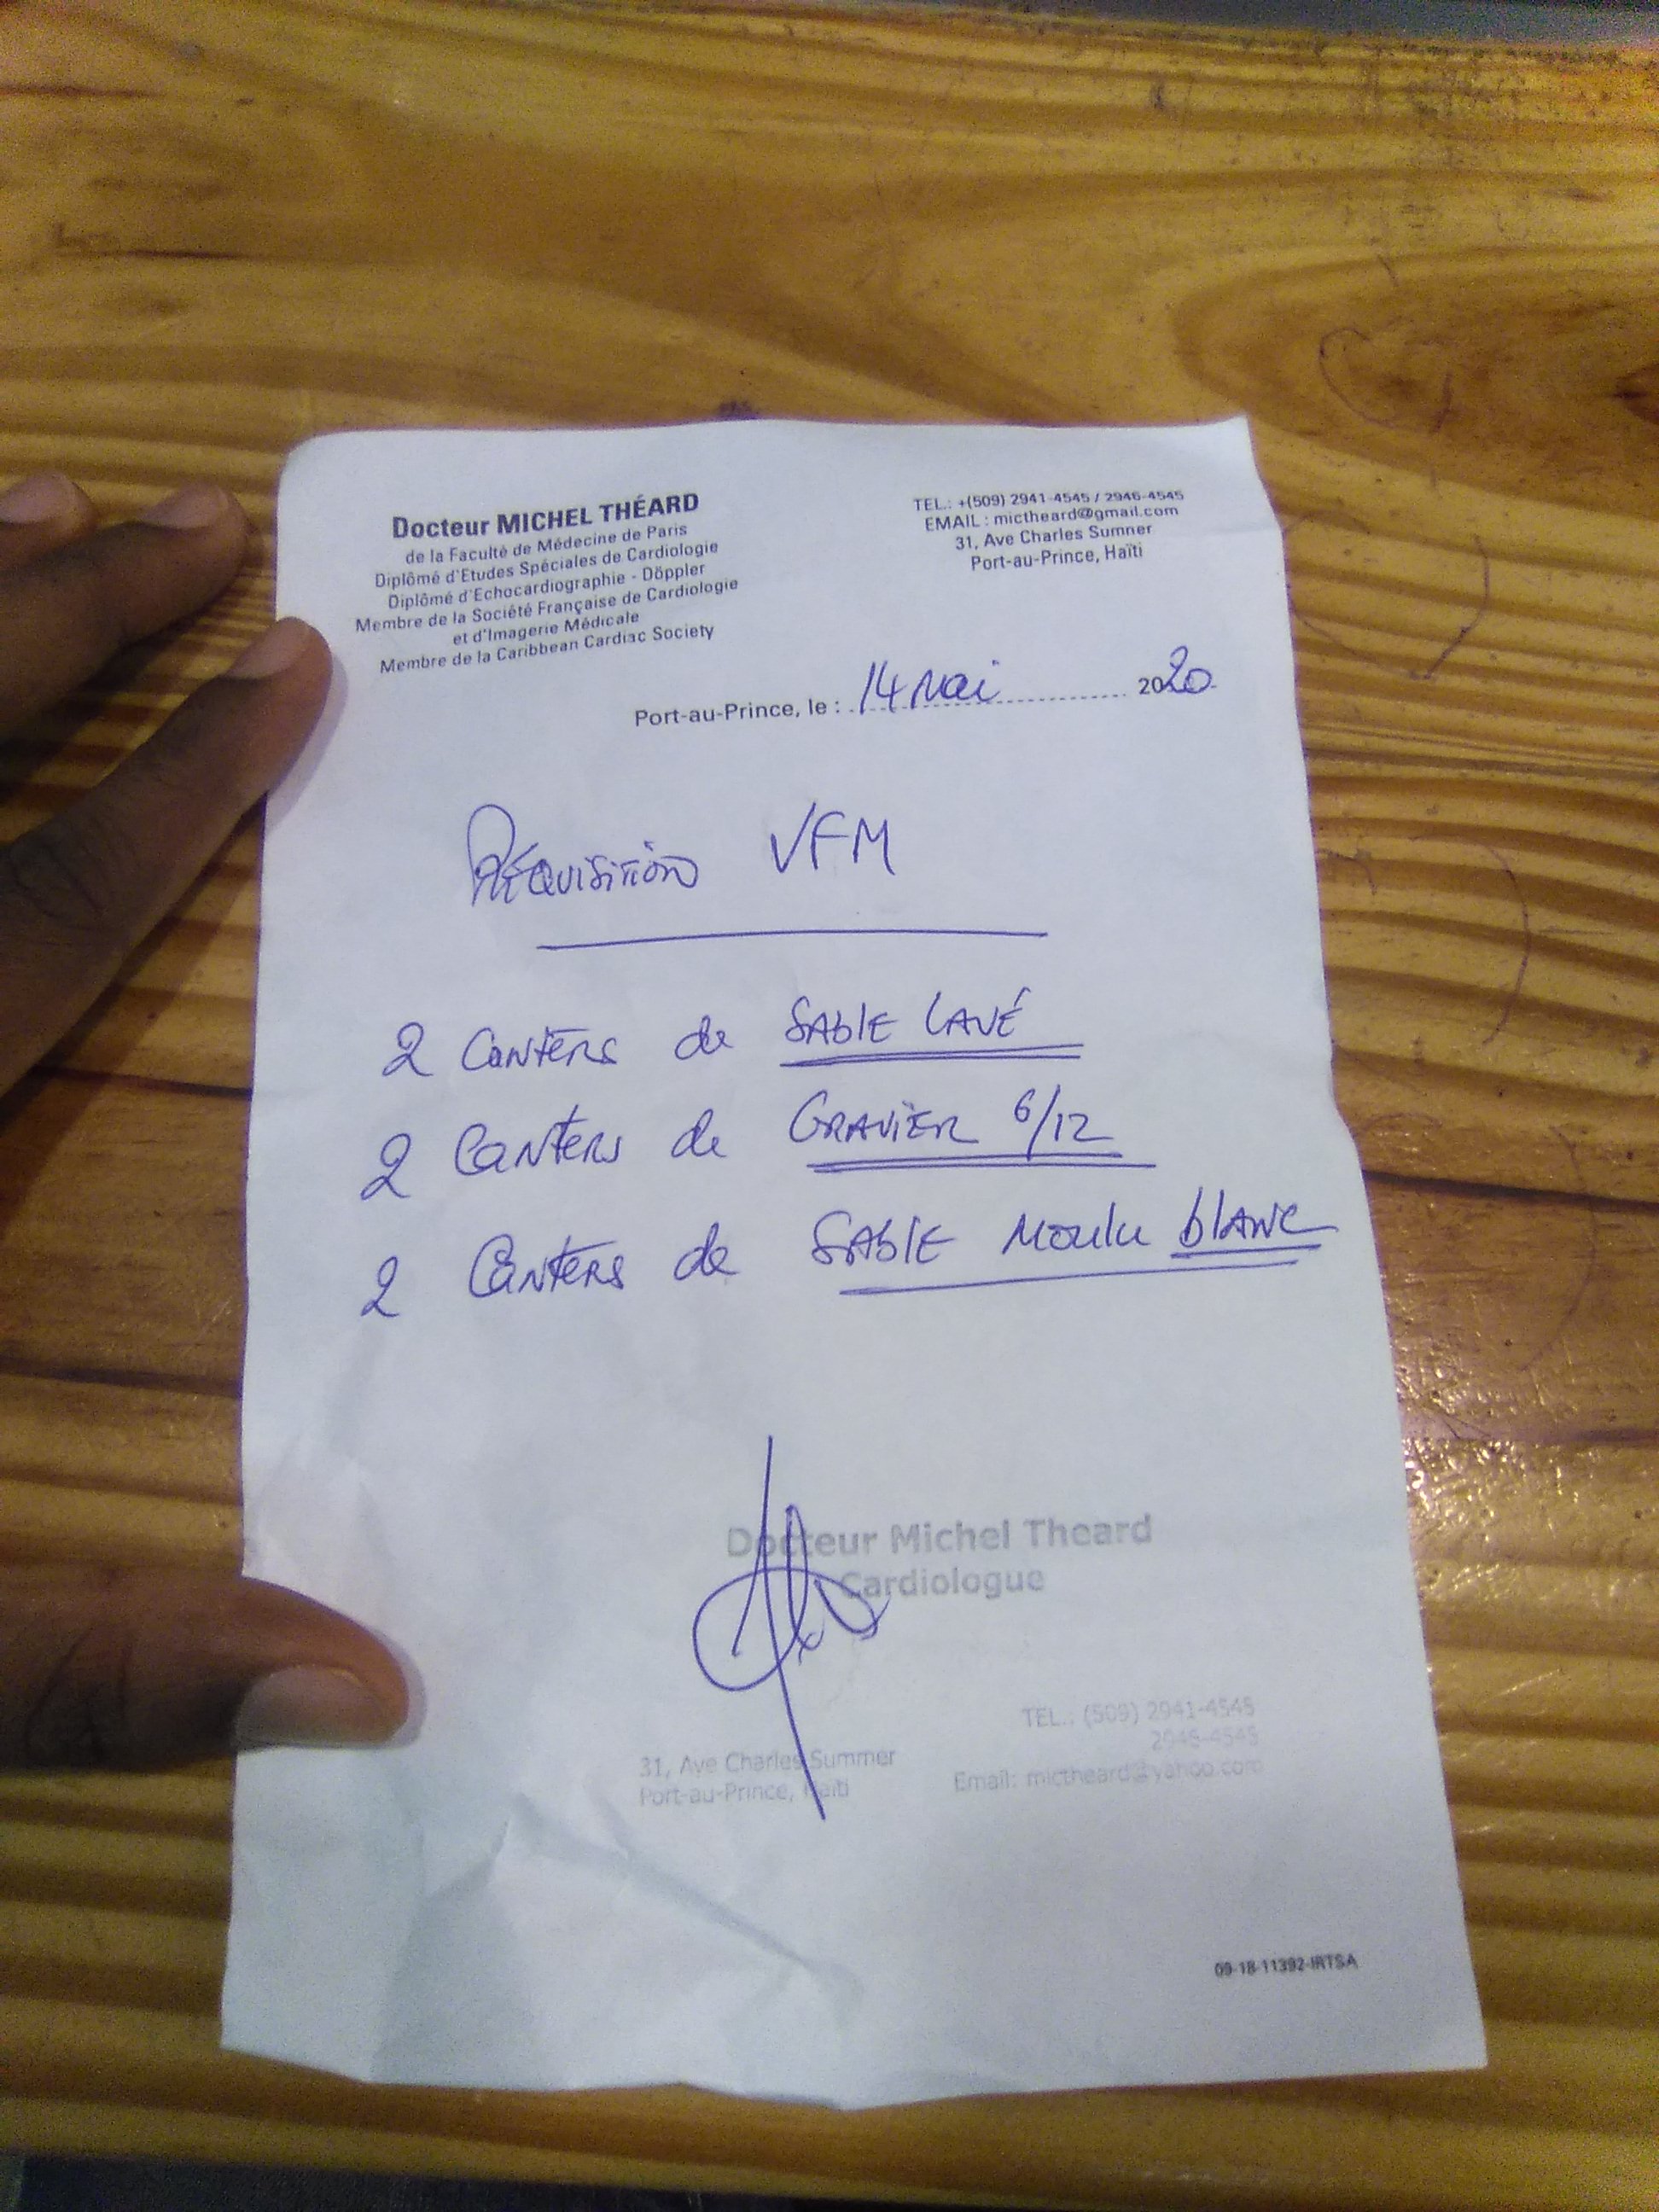 Docteur MICHEL THÉARD
de la Faculté de Médecine de Paris
Diplômé d'Etudes Spéciales de Cardiologie
Diplômé d'Echocardiographie - Döppler
Membre de la Société Française de Cardiologie
et d'Imagerie Médicale
Membre de la Caribbean Cardiac Society
TEL.: +(509) 2941-4545 / 2946-4545
EMAIL : mictheard@gmail.com
31, Ave Charles Sumner
Port-au-Prince, Haïti
Port-au-Prince, le : 14 Mai 2020
Réquisition VFM
2 Canters de SABLE LAVÉ
2 Canters de GRAVIER 6/12
2 Canters de SABLE Moulu blanc
Docteur Michel Theard
Cardiologue
31, Ave Charles Summer
Port-au-Prince, Haiti
TEL.: (509) 2941-4545
2946-4545
Email: mictheard@yahoo.com
09-18-11392-IRTSA